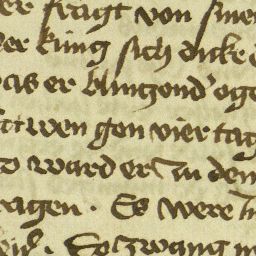 er fragt von sine
der king sich dicke
das er blingend oge
wen gen vier tag
ward er in den
ragen . Es were
. So zwang